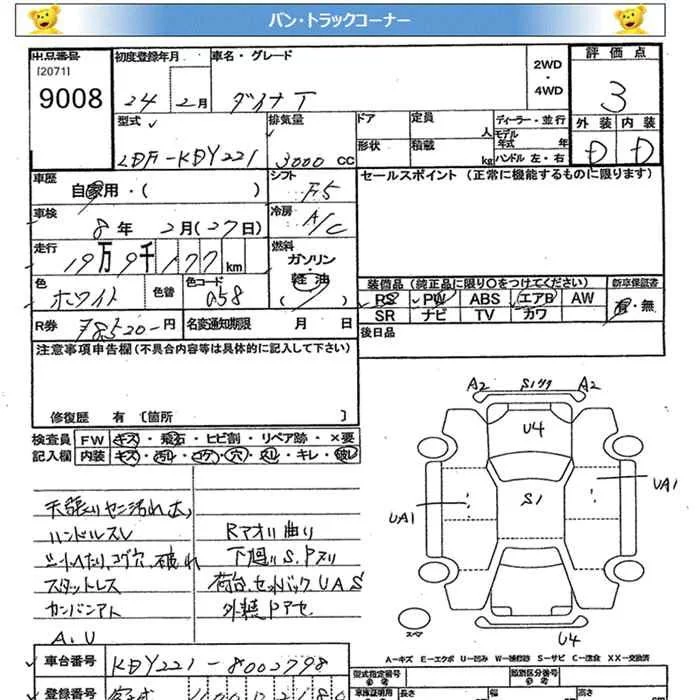 バン・トラックコーナー
出品番号
[2071]
9008
初度登録年月
24 2月
車名・グレード
ダイナ T
2WD
・
4WD
評価点
3
型式
LDF-KDY221
排気量
3000 CC
ドア
定員
人
形状
積載
kg
ディーラー・並行
モデル年式 年
ハンドル 左・右
外装 内装
D D
車歴
自家用・( )
シフト
F5
セールスポイント (正常に機能するものに限ります)
車検
8年 2月(27日)
冷房
A/C
走行
19万9千177km
燃料
ガソリン
軽油
( )
色
ホワイト
色替
色コード
058
装備品 (純正品に限り○をつけてください)
新車保証書
PS PW ABS エアB AW
有・無
SR ナビ TV カワ
R券
78520-円
名変通知期限 月 日
後日品
注意事項申告欄(不具合内容等は具体的に記入して下さい)
修復歴 有 〔箇所 〕
検査員記入欄
FW キズ・飛石・ヒビ割・リペア跡・×要
内装 キズ・汚れ・コゲ・穴・スレ・キレ・破レ
天張りヤニ汚れ大
ハンドルスレ
シートヘたり、コゲ穴、破れ
スタットレス
カンバンアト
A、U
Rアオリ曲り
下廻りS、Pスリ
荷台、セットバックUAS
外装Pアセ
A2 S1ワレ A2
U4
S1
UA1
UA1
スペア
U4
A-キズ E-エクボ U-凹み W-補修跡 S-サビ C-腐食 XX-交換済
車台番号
KDY221-8002798
型式指定番号
参考
類別区分番号
参考
登録番号
車庫証明用
長さ
幅
高さ